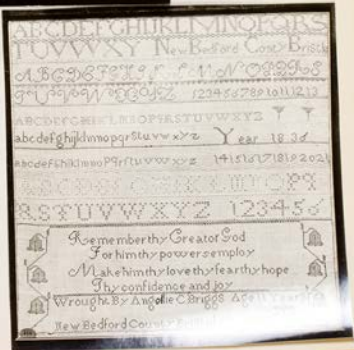 ABCDEFGHIJKLMNOPQRS
TUVWXY New Bedford Coty Bristol
ABCDEFGHIJ L MNOPQRS
TUVWXYZ 12345678910111213
ABCDEFGHIJKLMNOPQRSTUVWXYZ
abcdefghijklmnopqrstuvwxyz Year 1836
abcdefghijklmnopqrstuvwxyz 1415161718192021
KLMNOPQ
RSTUVWXYZ 123456
Remember thy Creator God
For him thy powers employ
Make him thy love thy fear thy hope
Thy confidence and joy
Wrought By Angelie C Briggs Aged 11 Years
New Bedford County